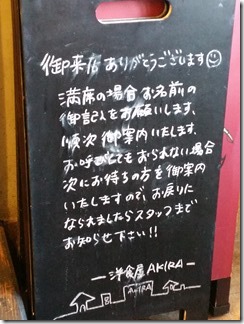 御来店ありがとうございます
満席の場合お名前の
御記入をお願いします、
順次御案内いたします。
お呼びしてもおられない場合
次にお待ちの方を御案内
いたしますので、お戻りに
なられましたらスタッフまで
お知らせ下さい!!
ー洋食屋AKIRAー
AKIRA